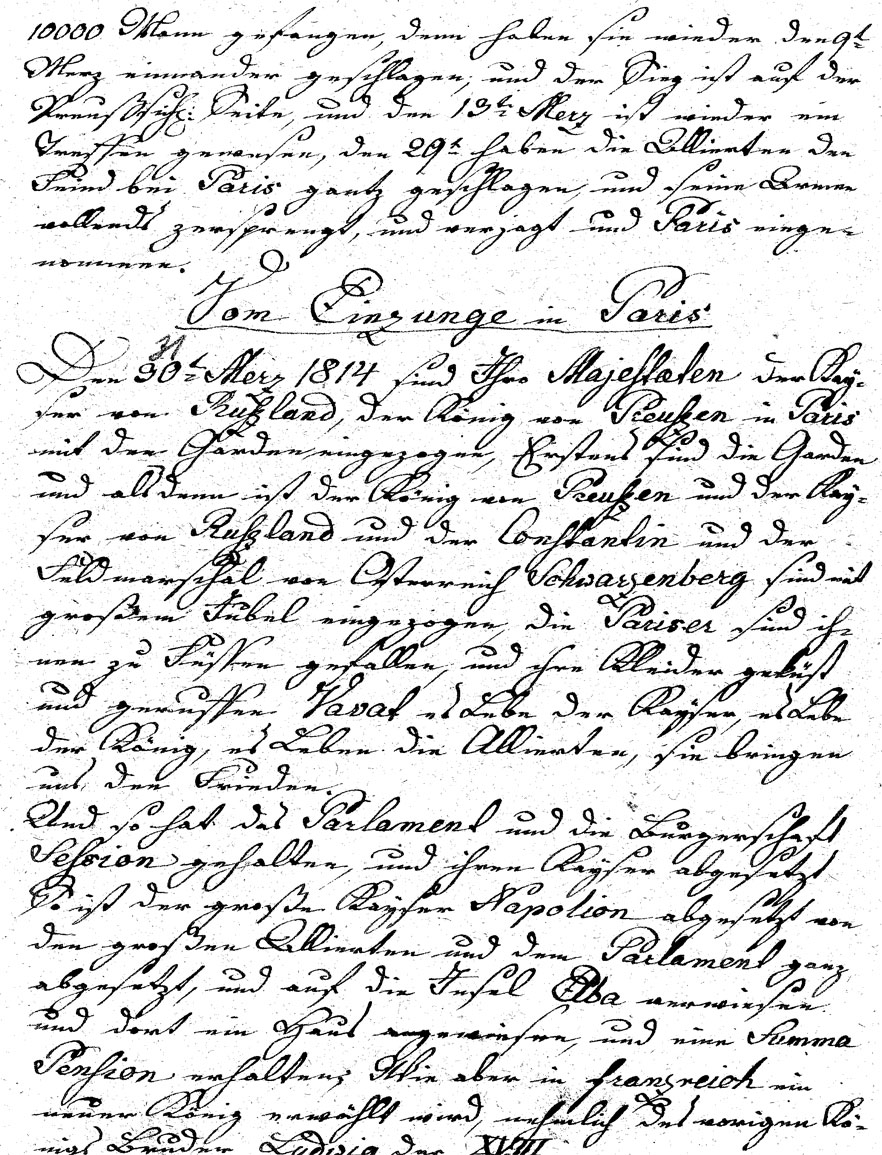 10000 Mann gefangen, denn haben sie wieder den 9t
Merz einnander geschlagen, und der Sieg ist auf der
Preußsisch: Seite, und den 13t: Merz ist wieder ein
Treffen gewesen, den 29t haben die Allierten den
Feind bei Paris gantz geschlagen, und seine Armee
vollends zersprengt, und verjagt und Paris einge=
nommen.
Vom Einzunge in Paris
31
Den 30t Merz 1814 sind Ihro Majestæten der Kay=
ser von Rußland, der König von Preußen in Paris
mit den Garden eingezogen, Erstens sind die Garden
und alsdenn ist der König von Preußen und der Kay=
ser von Rußland und der Constantin und der
Feldmarschal von Osterreich Schwarzenberg sind mit
großem Jubel eingezogen, die Pariser sind ih=
nen zu Füssen gefallen, und ihre Kleider geküst
und geruffen Vavat es Lebe der Kayser, es Lebe
der König, es Leben die Allierten, sie bringen
uns den Frieden.
Und so hat das Parlament und die Burgerschaft
Session gehalten, und ihren Kayser abgesetzt
So ist der große Kayser Napolion abgesetzt von
den großen Allierten und dem Parlament ganz
abgesetzt, und auf die Insel Elba verwiesen
und dort ein Haus angewiesen, und eine Summa
Pension erhalten; Wie aber in franzreich ein
neuer König erwählt wird, nehmlich des vorigen Kö=
nigs Bruder Ludwig der XVIII